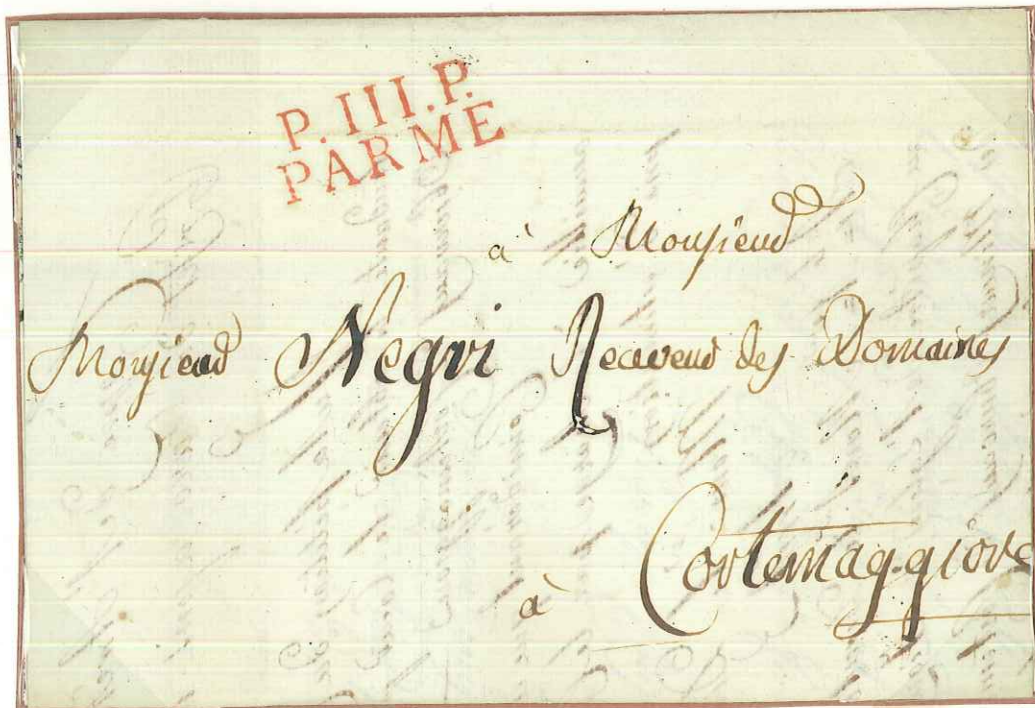 P.III.P.
PARME
à Monsieur
Monsieur Negri Receveur des Domaines
à Cortemaggiore